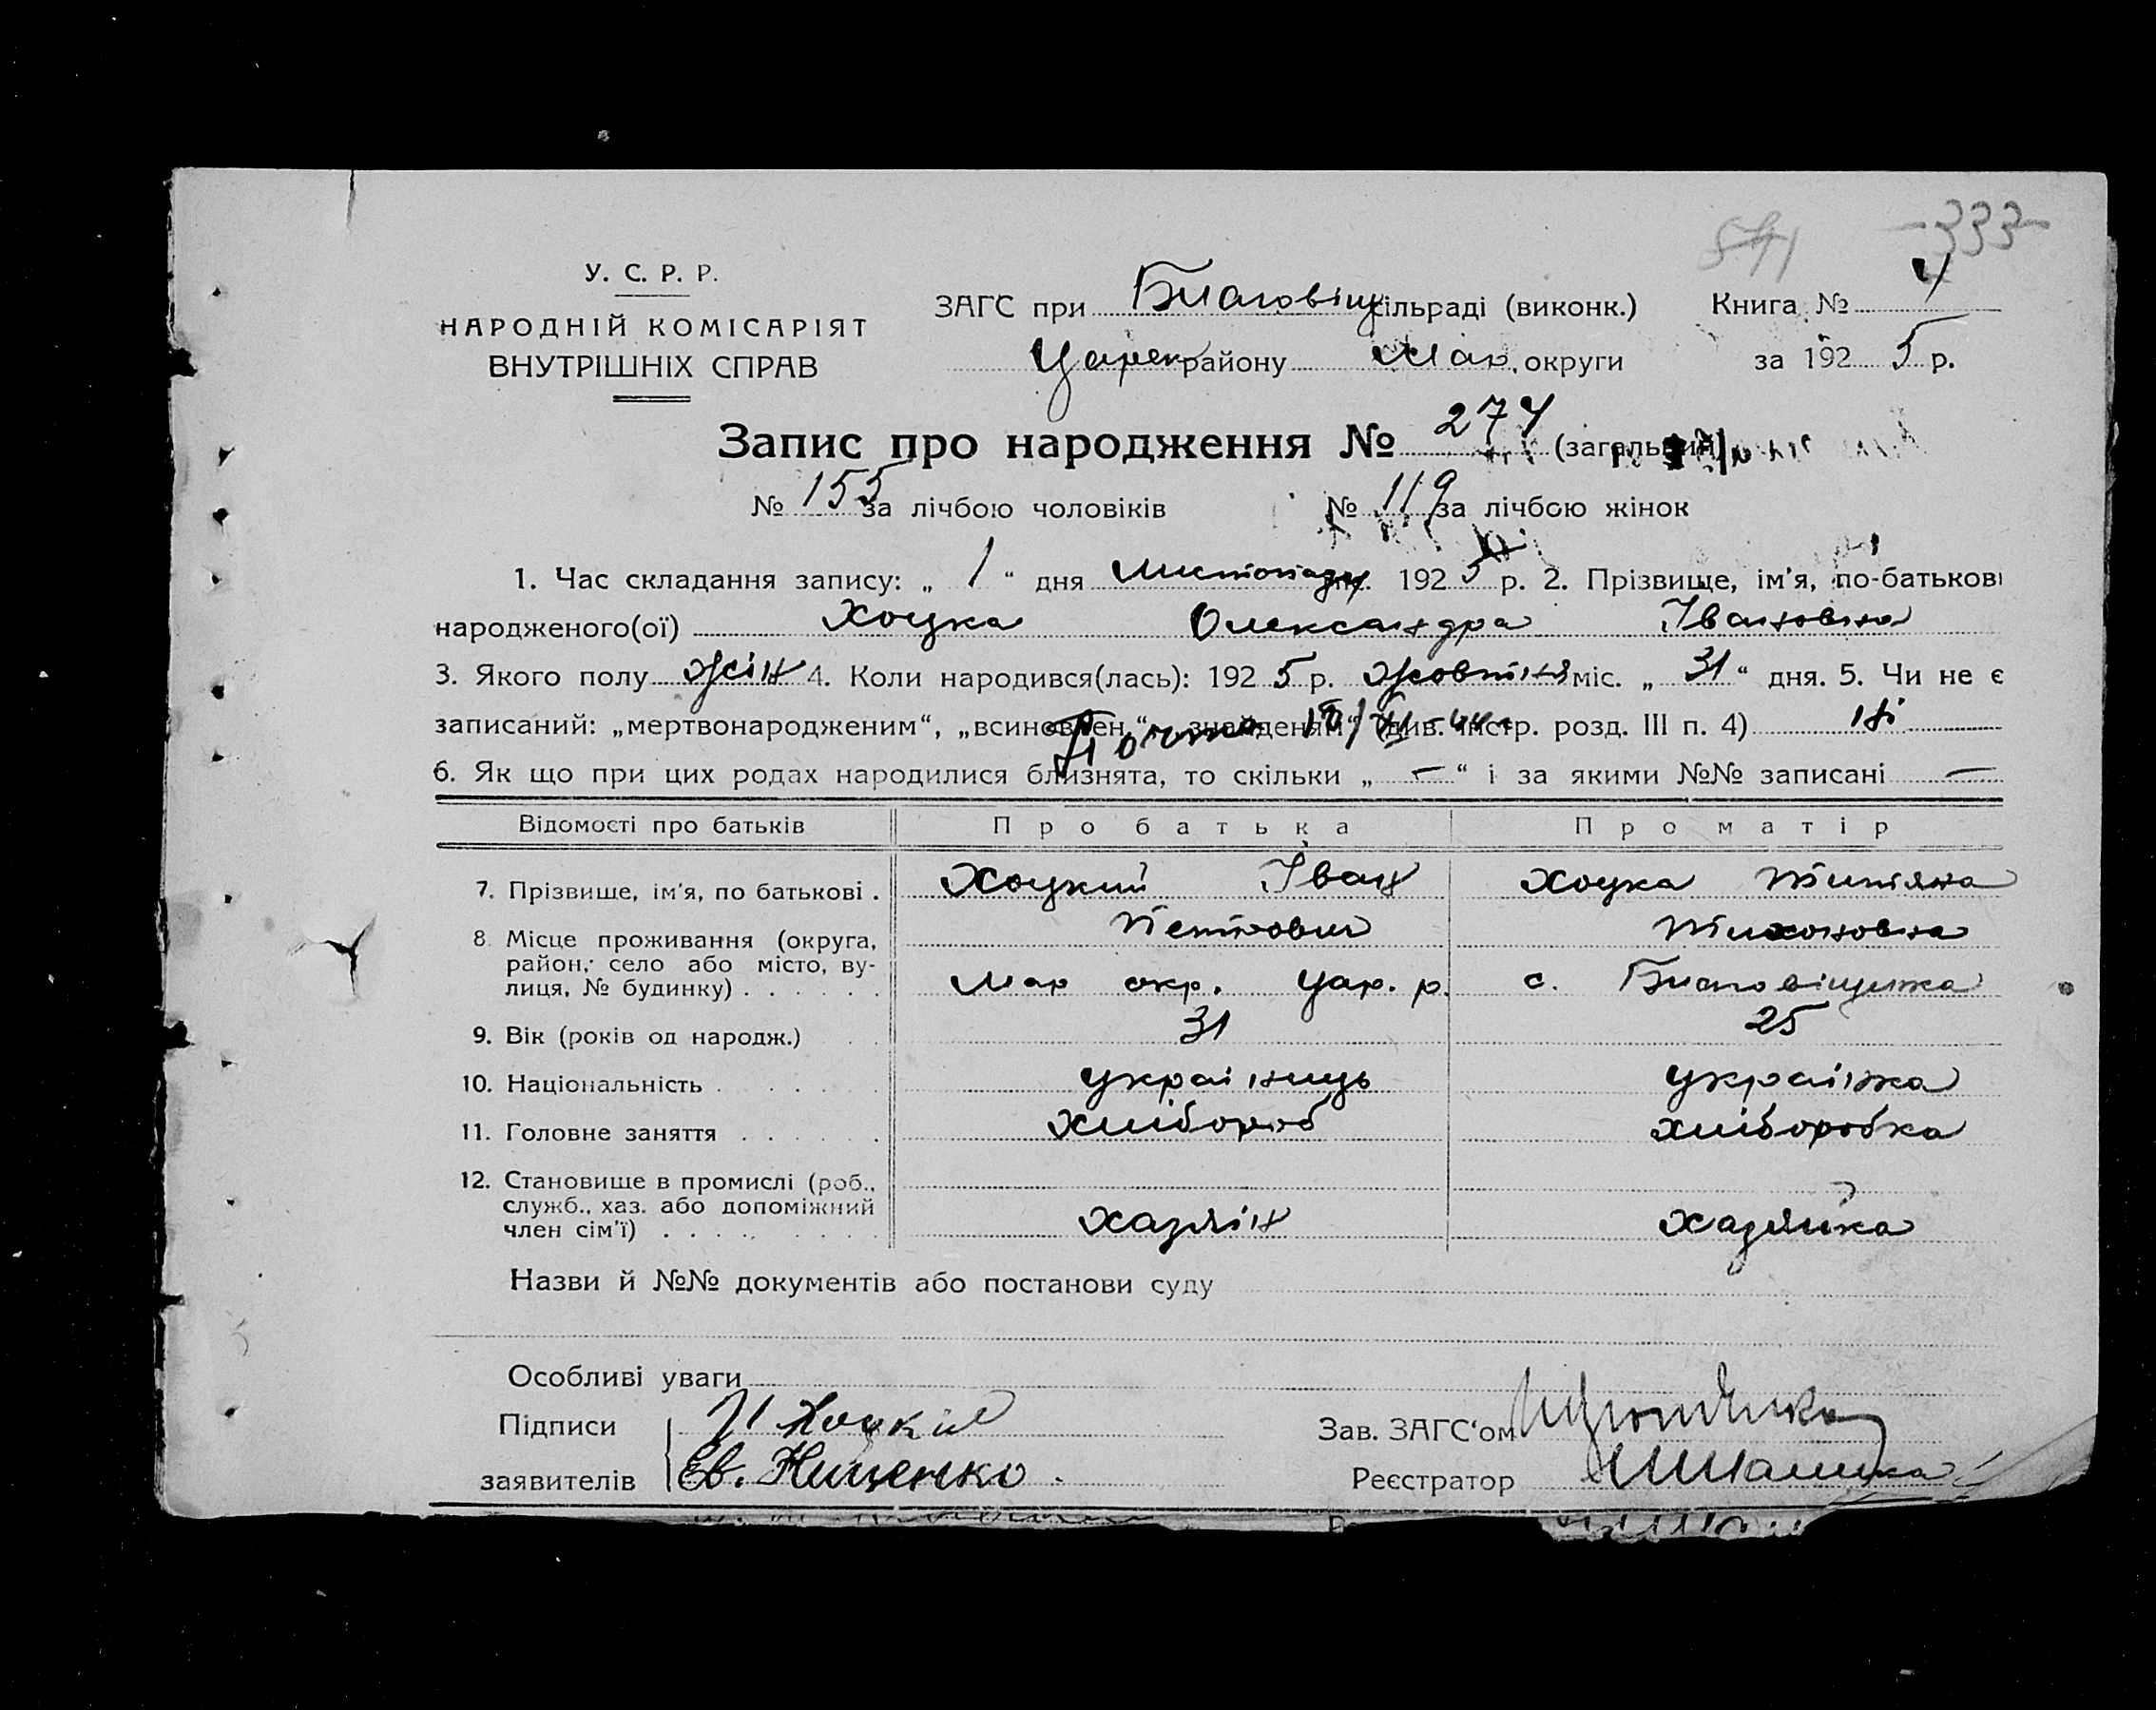 -333-
541
У. С. Р. Р.
НАРОДНІЙ КОМІСАРІЯТ
ВНУТРІШНІХ СПРАВ
ЗАГС при Благовіщ сільраді (виконк.) Книга № 4
Царек району Мар. округи за 1925 р.
Запис про народження № 274 (загальний)
№ 155 за лічбою чоловіків № 119 за лічбою жінок
1. Час складання запису: „ 1 “ дня листопаду м. 1925 р. 2. Прізвище, ім'я, по-батькові
народженого(ої) Хоцка Олександра Івановна
3. Якого полу жін 4. Коли народився(лась): 1925 р. жовтня міс. „ 31 “ дня. 5. Чи не є
записаний: „мертвонародженим“, „всиновлен.“, „знайденям“ (див. інстр. розд. III п. 4) ні
6. Як що при цих родах народилися близнята, то скільки „ — “ і за якими №№ записані —
Відомості про батьків Про батька Про матір
7. Прізвище, ім'я, по батькові . Хоцкий Іван Хоцка Титяна
Петрович Тихоновна
8. Місце проживання (округа,
район, село або місто, ву-
лиця, № будинку) . . . . . . Мар окр. Цар. р. с. Благовіщенка
9. Вік (років од народж.) 31 25
10. Національність . украінець украінка
11. Головне заняття . . . . . . хлібороб хліборобка
12. Становище в промислі (роб.,
служб., хаз. або допоміжний
член сім'ї) . . . . . хазяін хазяйка
Назви й №№ документів або постанови суду
Особливі уваги
Підписи И Хоцкій Зав. ЗАГС‘ом
заявителів Ев. Нищенко. Реєстратор